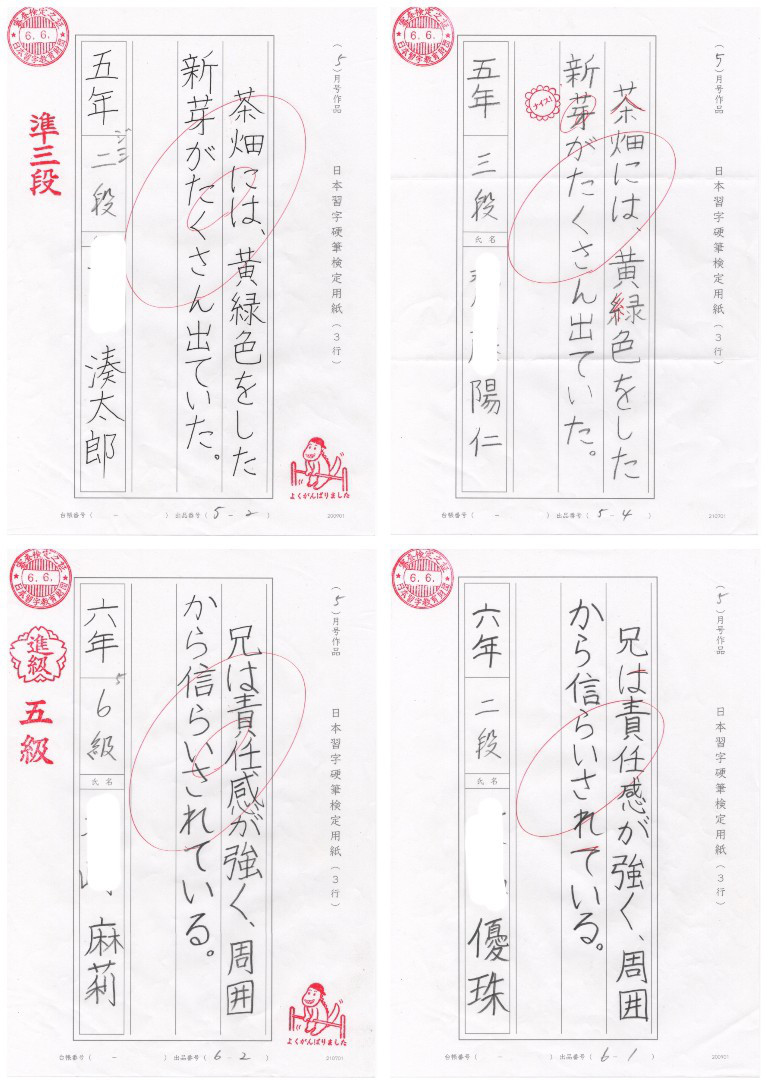 審査検定之証
6.6.
日本習字教育財団
(5)月号作品
日本習字硬筆検定用紙(3行)
茶畑には、黄緑色をした
新芽がたくさん出ていた。
五年
二段
湊太郎
準三段
よくがんばりました
台帳番号( - ) 出品番号( 5 - 2 )
200901
審査検定之証
6.6.
日本習字教育財団
(5)月号作品
日本習字硬筆検定用紙(3行)
茶畑には、黄緑色をした
新芽がたくさん出ていた。
ナイス!
五年
三段
氏名
陽仁
台帳番号( - ) 出品番号( 5 - 4 )
210701
審査検定之証
6.6.
日本習字教育財団
(5)月号作品
日本習字硬筆検定用紙(3行)
兄は責任感が強く、周囲
から信らいされている。
六年
5
6級
氏名
麻莉
進級
五級
よくがんばりました
台帳番号( - ) 出品番号( 6 - 2 )
210701
審査検定之証
6.6.
日本習字教育財団
(5)月号作品
日本習字硬筆検定用紙(3行)
兄は責任感が強く、周囲
から信らいされている。
六年
二段
氏名
優珠
台帳番号( - ) 出品番号( 6 - 1 )
200901